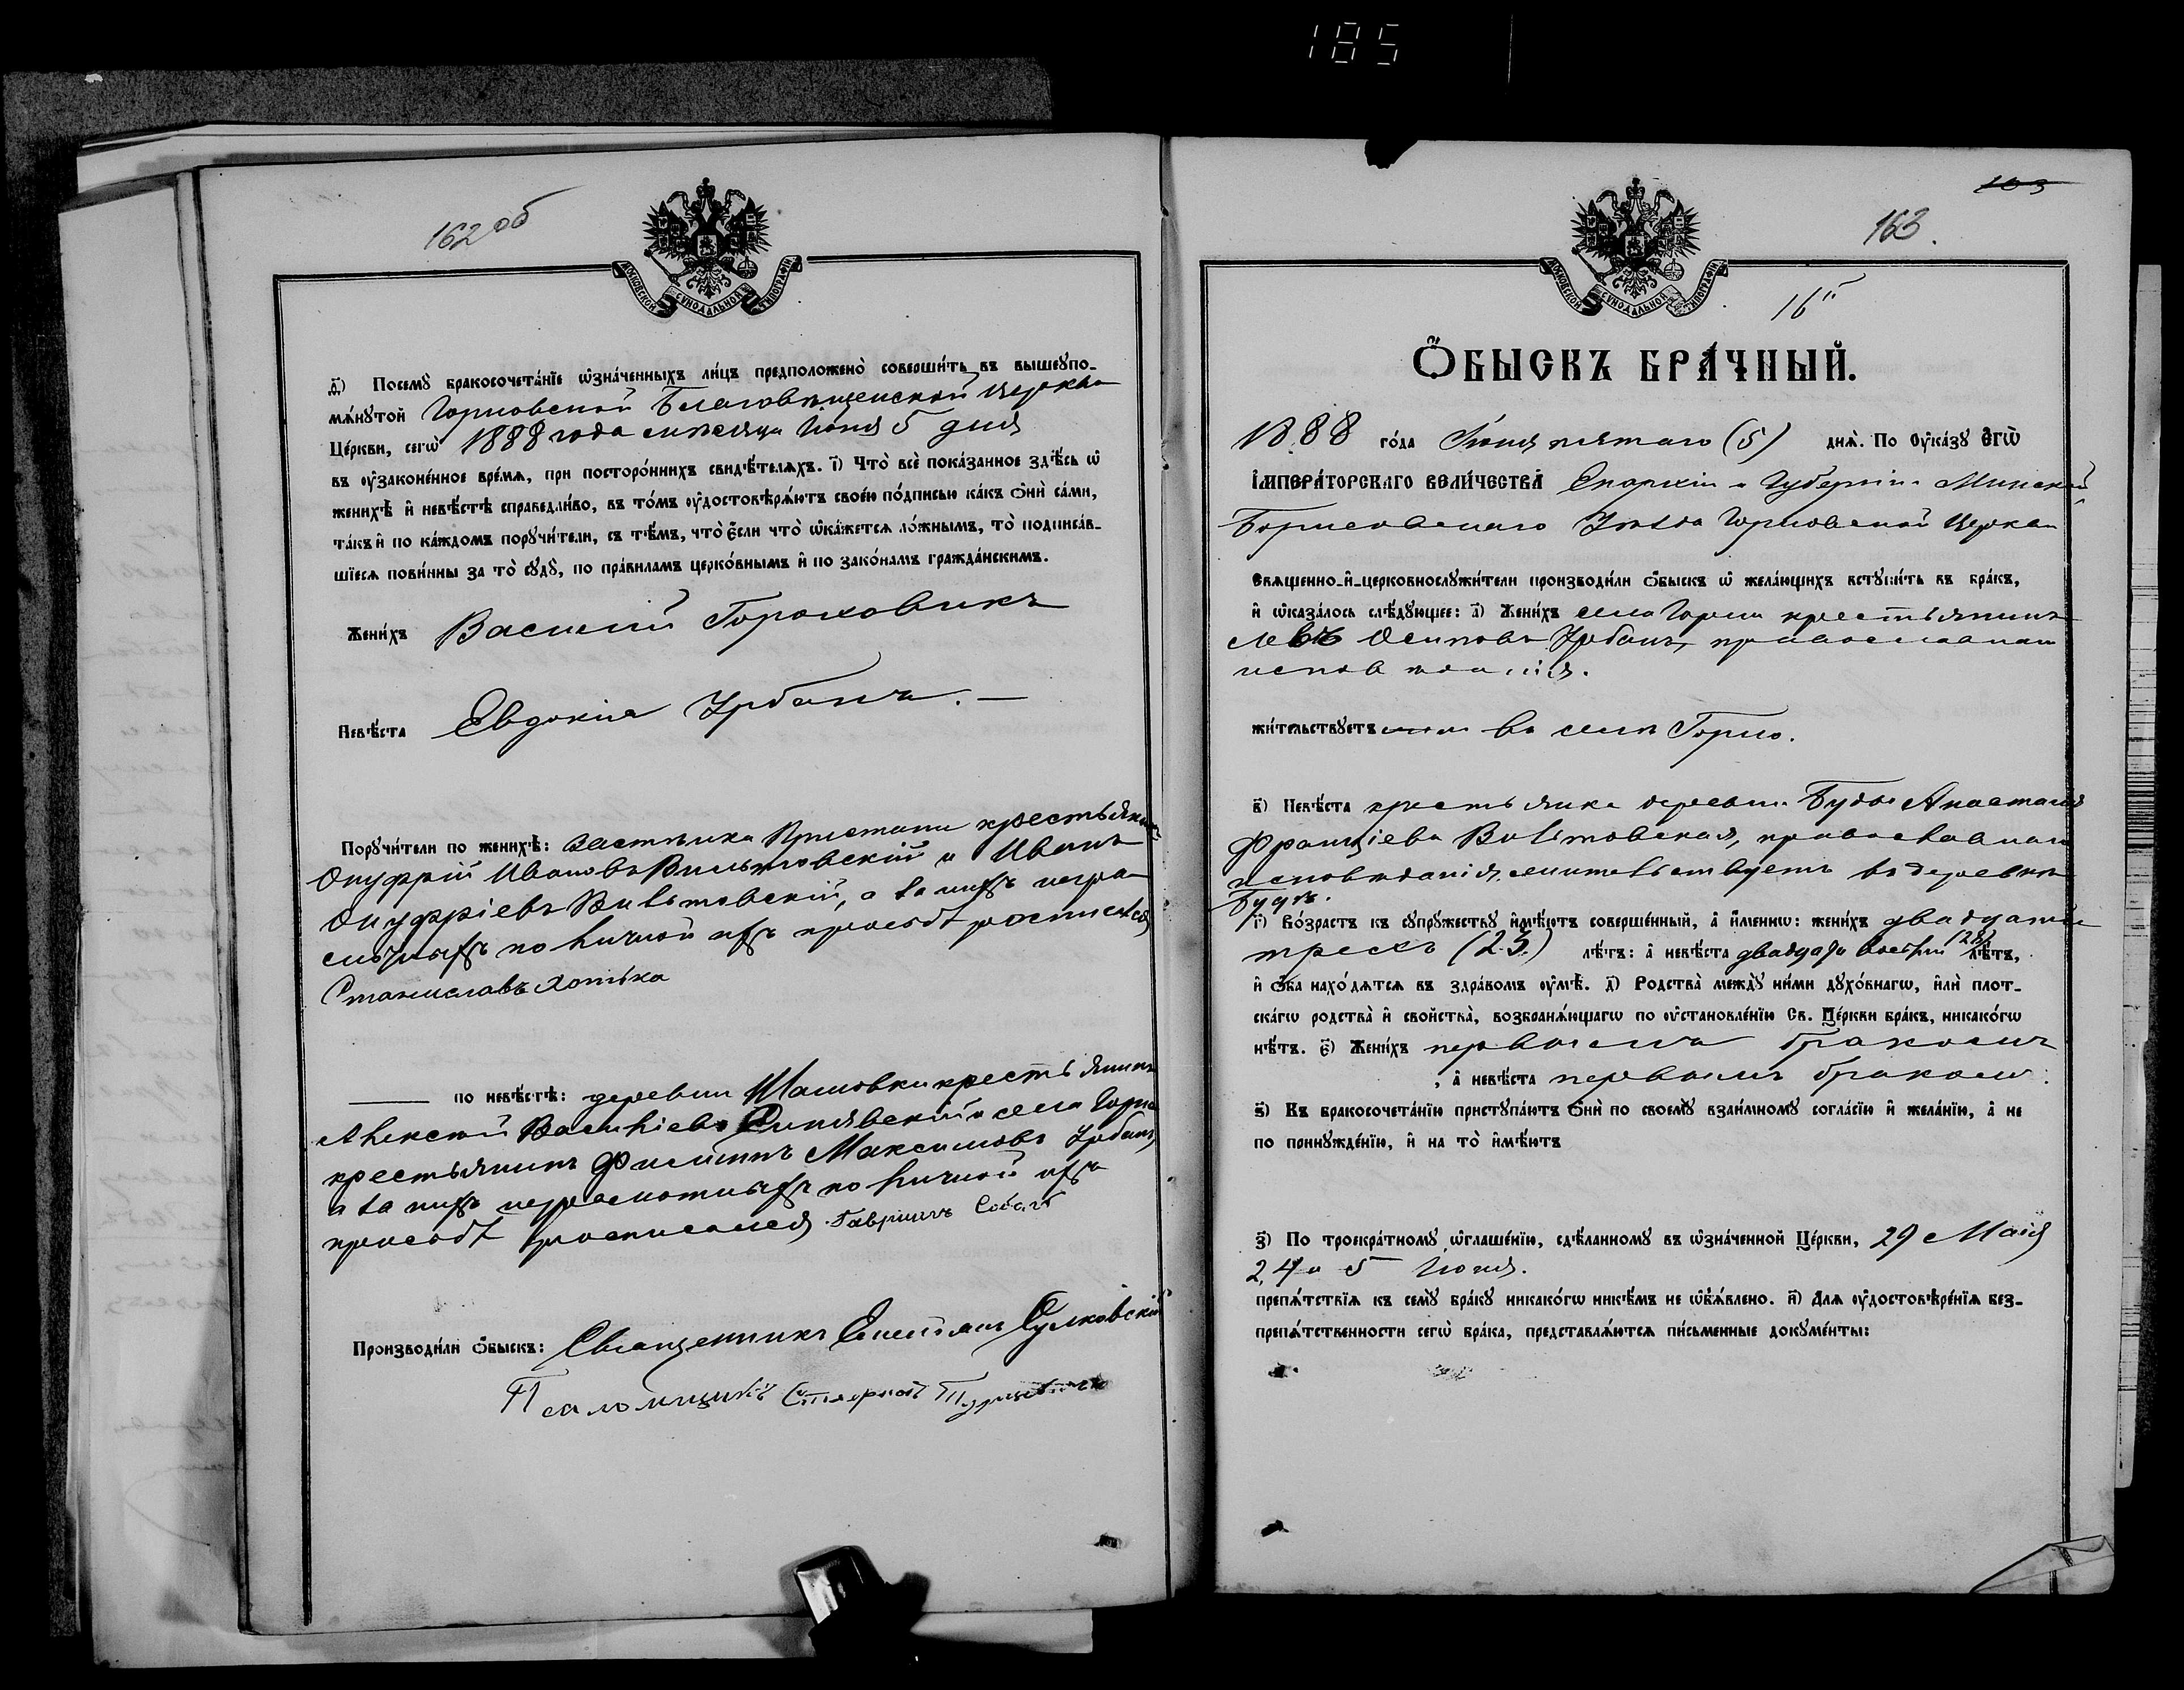 185
162 об
МОСКОВСКОЙ СѴНОДАЛЬНОЙ ТИПОГРАФІИ
д҃) Посемꙋ̀ бракосочета́нїе ѡ҆зна́ченныхъ ли́цъ предположено̀ соверши́ть въ вышеꙋпо-
мѧ́нꙋтой Горновской Благовѣщенской Церкви
Це́ркви, сегѡ̀ 1888 года мѣсяца Іюня 5 дня
въ ᲂу҆законе́нное вре́мѧ, при посторо́ннихъ свидѣ́телѧхъ. і҃) Что̀ всѐ пока́занное здѣ́сь ѡ҆
женихѣ̀ и҆ невѣ́стѣ справедли́во, въ то́мъ ᲂу҆достовѣрѧ́ютъ своею по́дписью ка́къ ѻ҆нѝ са́ми,
та́къ и҆ по ка́ждомъ порꙋчи́тели, съ тѣ́мъ, что̀ є҆́сли что̀ ѡ҆ка́жетсѧ ло́жнымъ, то̀ подписа́в-
шїесѧ пови́нны за то̀ сꙋдꙋ̀, по пра́виламъ церко́внымъ и҆ по зако́намъ гражда́нскимъ.
Жени́хъ Василій Гороховикъ
Невѣ́ста Евдокія Урбанъ. —
Порꙋчи́тели по женихѣ̀: застѣнка Пристани крестьяне
Онуфрій Ивановъ Вильтовскій и Иванъ
Онуфріевъ Вильтовскій, а за нихъ негра-
мотныхъ по личной ихъ просьбѣ росписался
Станиславъ Хотько
—— по невѣ́стѣ: деревни Машовки крестьянинъ
Алексѣй Васильевъ Синявскій и села Горна
крестьянинъ Филиппъ Максимовъ Урбанъ,
а за нихъ неграмотныхъ по личной ихъ
просьбѣ росписался Гавріилъ
Производи́ли ѻ҆́быскъ: Священникъ Сулковскій
Псаломщикъ
163
163.
16й
МОСКОВСКОЙ СѴНОДАЛЬНОЙ ТИПОГРАФІИ
Ѻ҆БЫСКЪ БРА́ЧНЫЙ.
1888 го́да Іюня пятаго (5) днѧ̀. По Оу҆ка́зꙋ Е҆ГѠ̀
І҆МПЕРА́ТОРСКАГО ВЕЛИ́ЧЕСТВА Епархіи и Губерніи Минской
Борисовскаго Уѣзда Горновской Церкви
Свѧщенно-и҆-церковнослꙋжи́тели производи́ли ѻ҆́быскъ ѡ҆ жела́ющихъ встꙋпи́ть въ бра́къ,
и҆ ѡ҆каза́лось слѣ́дꙋющее: а҃) Жени́хъ села Горни крестьянинъ
Левъ Осиповъ Урбанъ, православнаго
исповѣданія.
жи́тельствꙋетъ въ селѣ Горно.
в҃) Невѣ́ста крестьянка деревни Буды Анастасія
Францiева Вильтовская, православнаго
исповѣданія, жительствуетъ въ деревнѣ
Будѣ.
г҃) Во́зрастъ къ сꙋпрꙋ́жествꙋ и҆мѣ́ютъ соверше́нный, а҆ и҆́менно: жени́хъ двадцати
трехъ (23) лѣ́тъ: а҆ невѣ́ста двадцати восьми (28) лѣ́тъ,
и҆ ѻ҆́ба нахо́дѧтсѧ въ здра́вомъ ᲂу҆мѣ̀. д҃) Родства̀ междꙋ̀ ни́ми дꙋхо́внагѡ, и҆лѝ плот-
ска́гѡ родства̀ и҆ свойства̀, возбранѧ́ющагѡ по ᲂу҆становле́нїю Св. Це́ркви бра́къ, никако́гѡ
нѣ́тъ. є҃) Жени́хъ первымъ бракомъ
, а҆ невѣ́ста первымъ бракомъ.
ѕ҃) Къ бракосочета́нїю пристꙋпа́ютъ ѻ҆нѝ по своемꙋ̀ взаи́мномꙋ согла́сїю и҆ жела́нїю, а҆ не
по принꙋжде́нїю, и҆ на то̀ и҆мѣ́ютъ
з҃) По троекра́тномꙋ ѡ҆глаше́нїю, сдѣ́ланномꙋ въ ѡ҆зна́ченной Це́ркви, 29 Маія
2, 4 и 5 Іюня.
препѧ́тствїѧ къ семꙋ̀ бра́кꙋ никако́гѡ никѣ́мъ не ѡ҆б̾ѧ́влено. и҃) Длѧ ᲂу҆достовѣре́нїѧ без-
препѧ́тственности сегѡ̀ бра́ка, представлѧ́ютсѧ пи́сьменные докꙋме́нты: